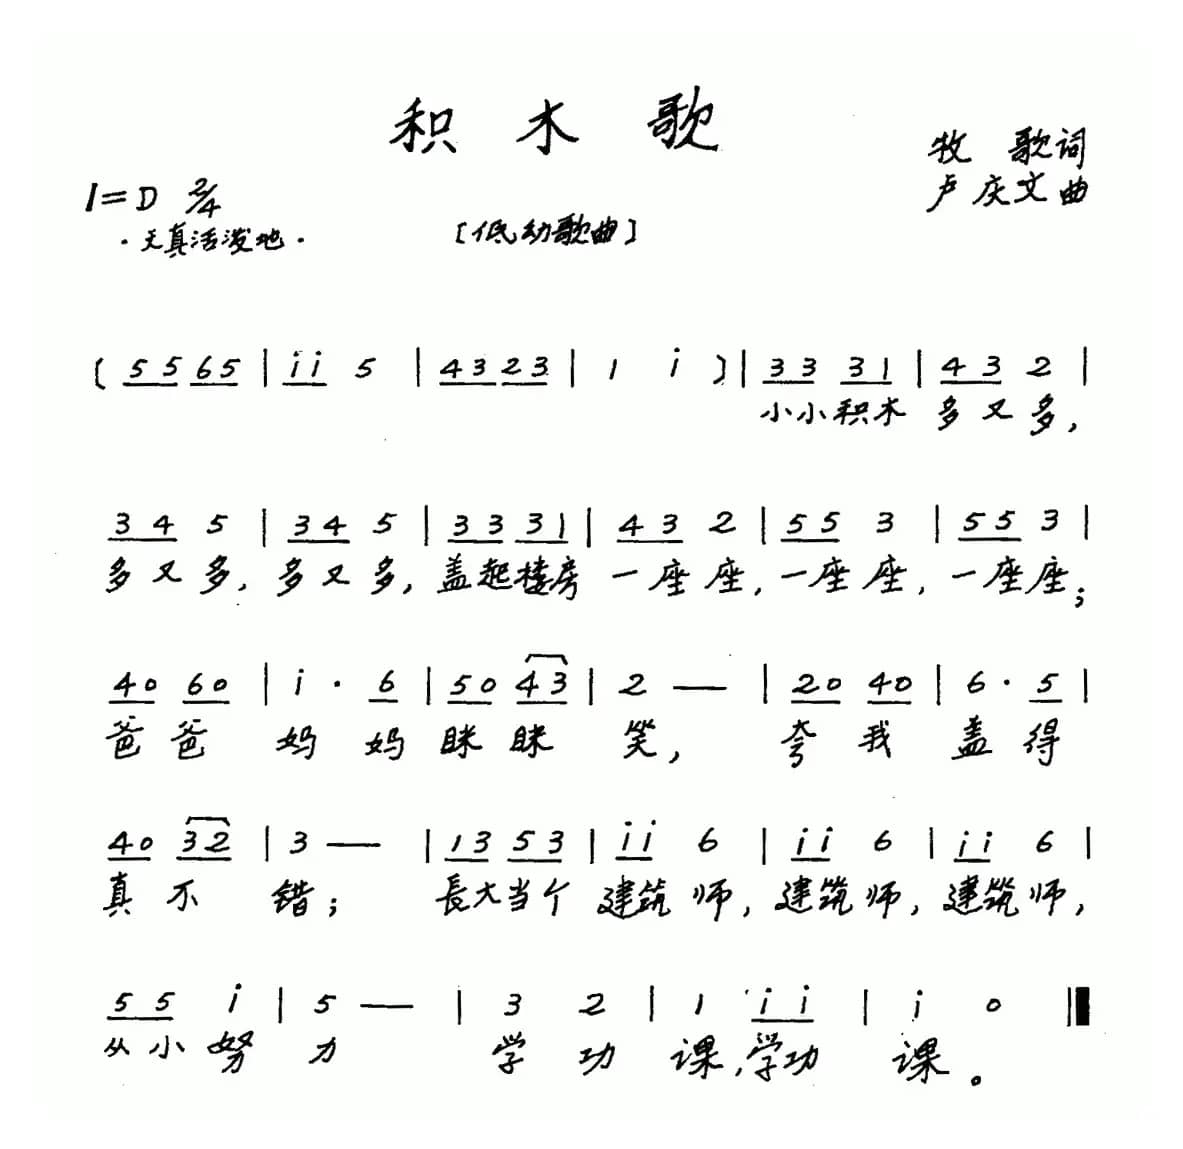 积木歌
牧 歌词
1=D 2/4
卢庆文曲
·天真活泼地·
[低幼歌曲]
( 5 5 6 5 | i i 5 | 4 3 2 3 | 1 i ) | 3 3 3 1 | 4 3 2 |
小小积木 多又多,
3 4 5 | 3 4 5 | 3 3 3 1 | 4 3 2 | 5 5 3 | 5 5 3 |
多又多, 多又多, 盖起楼房 一座座, 一座座, 一座座;
4 0 6 0 | i · 6 | 5 0 4 3 | 2 — | 2 0 4 0 | 6 · 5 |
爸爸 妈妈 眯眯 笑, 夸我 盖得
4 0 3 2 | 3 — | 1 3 5 3 | i i 6 | i i 6 | i i 6 |
真不 错; 長大当个 建筑师, 建筑师, 建筑师,
5 5 i | 5 — | 3 2 | 1 i i | i 0 ‖
从小努 力 学功 课,学功 课。